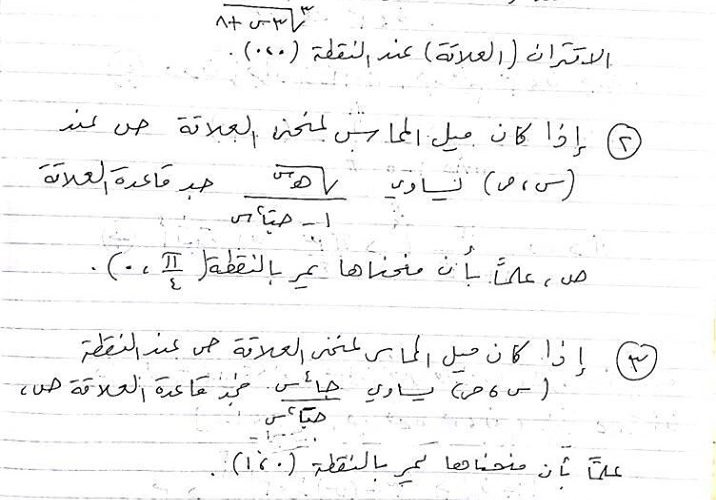 ³√٣س + ٨
الاقتران (العلاقة) عند النقطة (٠،٠).
② إذا كان ميل المماس لمنحنى العلاقة ص عند
(س، ص) يساوي √هـس / ١ - جتا²س جد قاعدة العلاقة
ص، علماً بأن منحناها يمر بالنقطة (π/٤، ٠).
③ إذا كان ميل المماس لمنحنى العلاقة ص عند النقطة
(س، ص) يساوي جا²س / جتا²س فجد قاعدة العلاقة ص،
علماً بأن منحناها يمر بالنقطة (١،٠).